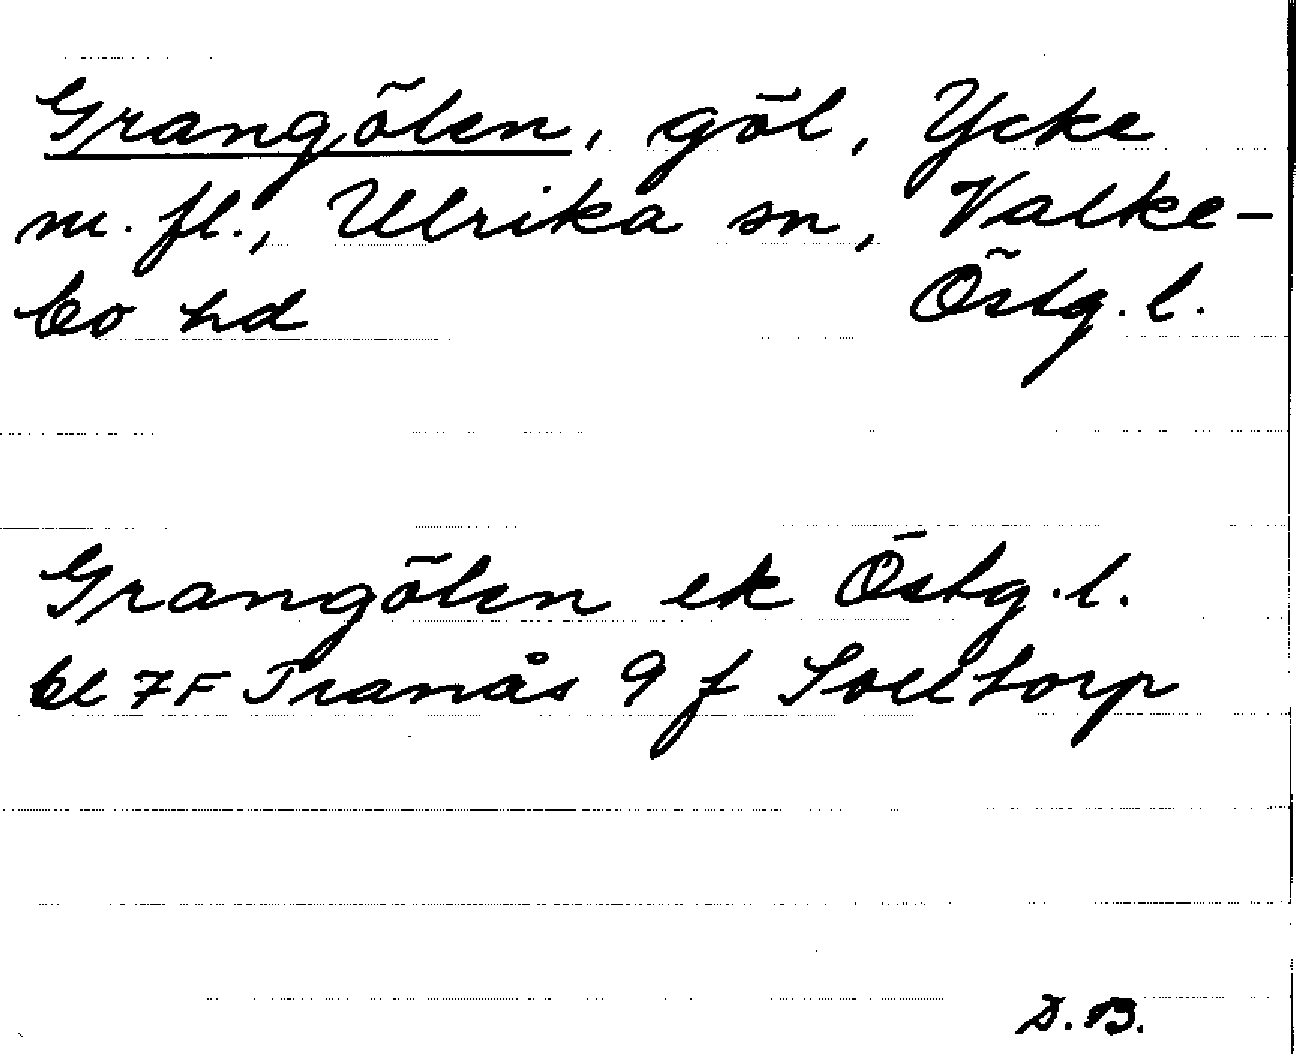 Grangölen, göl, Ycke
m. fl., Ulrika sn, Valke-
bo hd Östg. l.
Grangölen ek Östg. l.
bl 7F Tranås 9 f Solltorp
D.B.